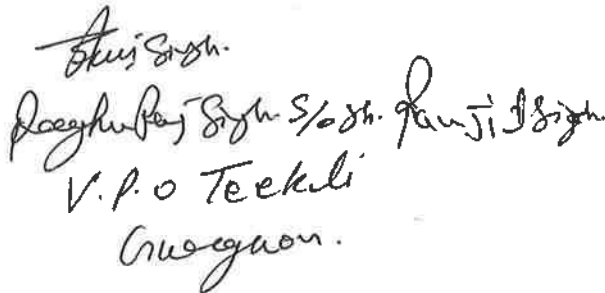 Singh.
RaghuRaj Singh. S/o Sh. Ramji Singh.
V.P.O Teekli
Gurgaon.